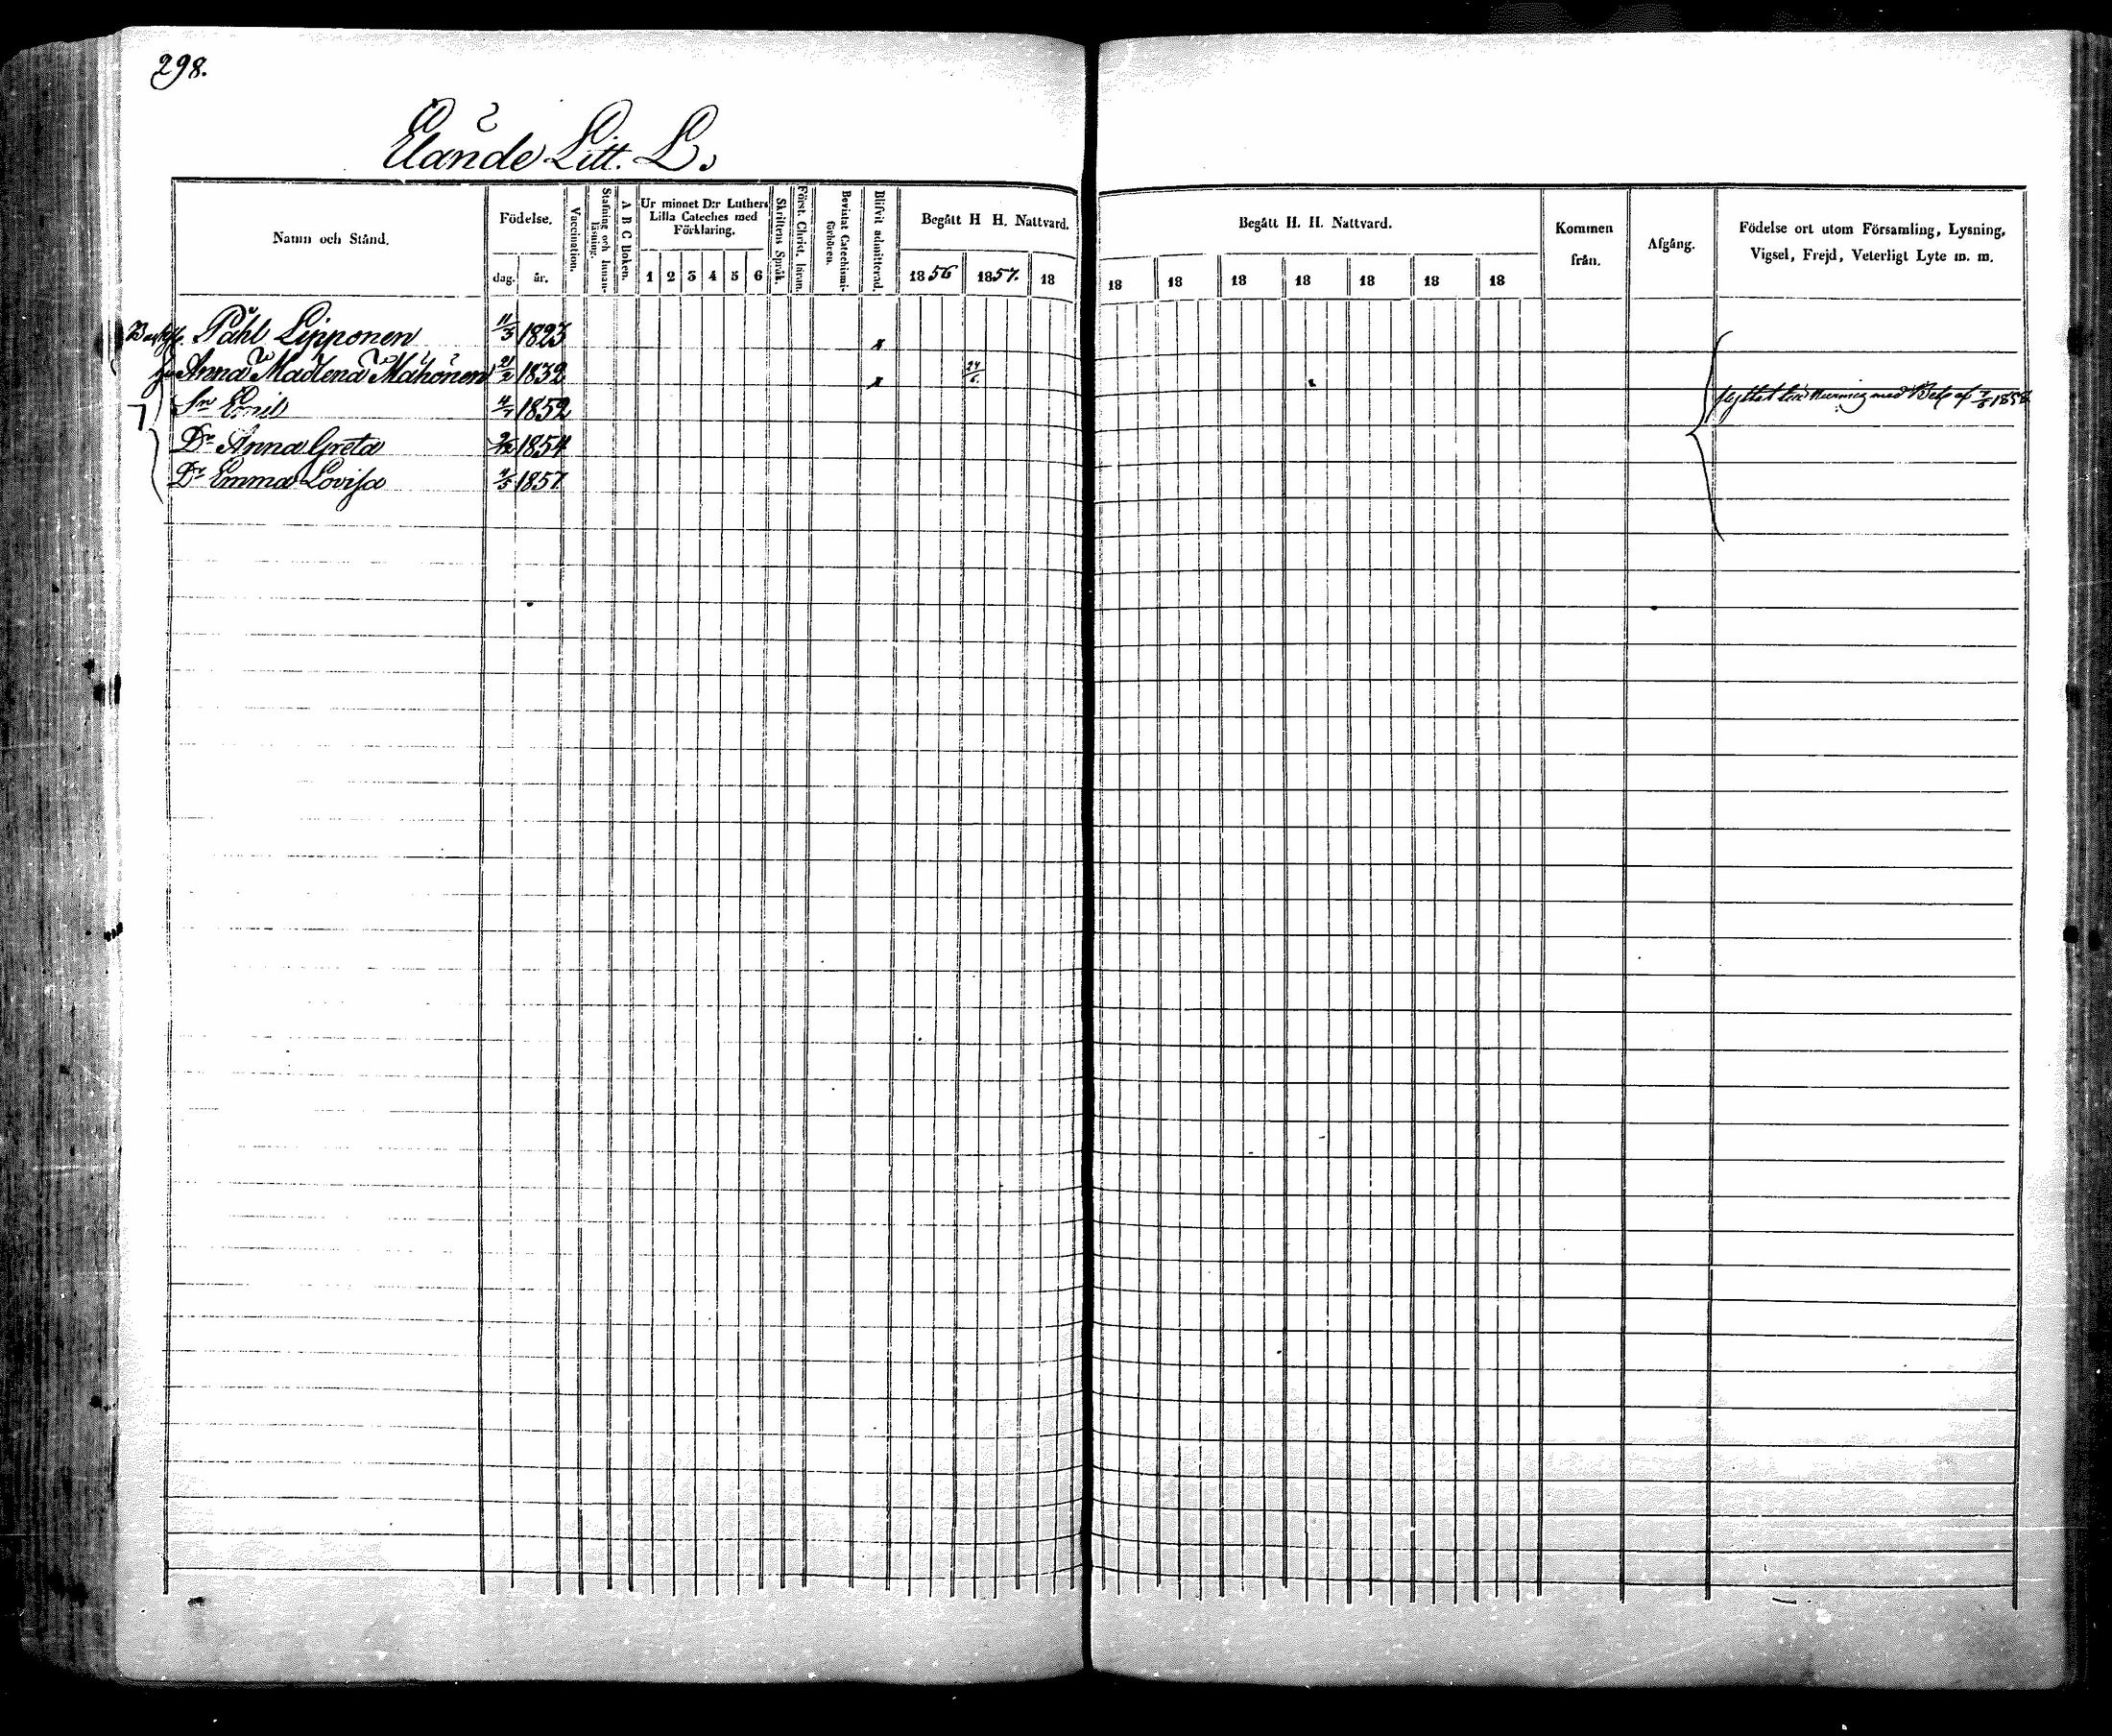 298.
Elände Litt. L.
Namn och Stånd.
Födelse.
dag.
år.
Vaccination.
Stafning och Innanläsning.
A B C Boken.
Ur minnet D:r Luthers Lilla Cateches med Förklaring.
1 2 3 4 5 6
Skriftens Språk.
Först. Christ. läran.
Bevistat Catechismiförhören.
Blifvit admitterad.
Begått H H. Nattvard.
1856 1857. 18
Begått H. H. Nattvard.
18 18 18 18 18 18 18
Kommen från.
Afgång.
Födelse ort utom Församling, Lysning, Vigsel, Frejd, Veterligt Lyte m. m.
Påhl Lipponen 11/3 1823 x
Anna Madlena Mähönen 21/2 1832 x 24/6.
Sn Emil 4/7 1852
Dr Anna Greta 1854
Dr Emma Lovisa 1857.
flyttat till Nurmis med Bet. af 7/8 1858